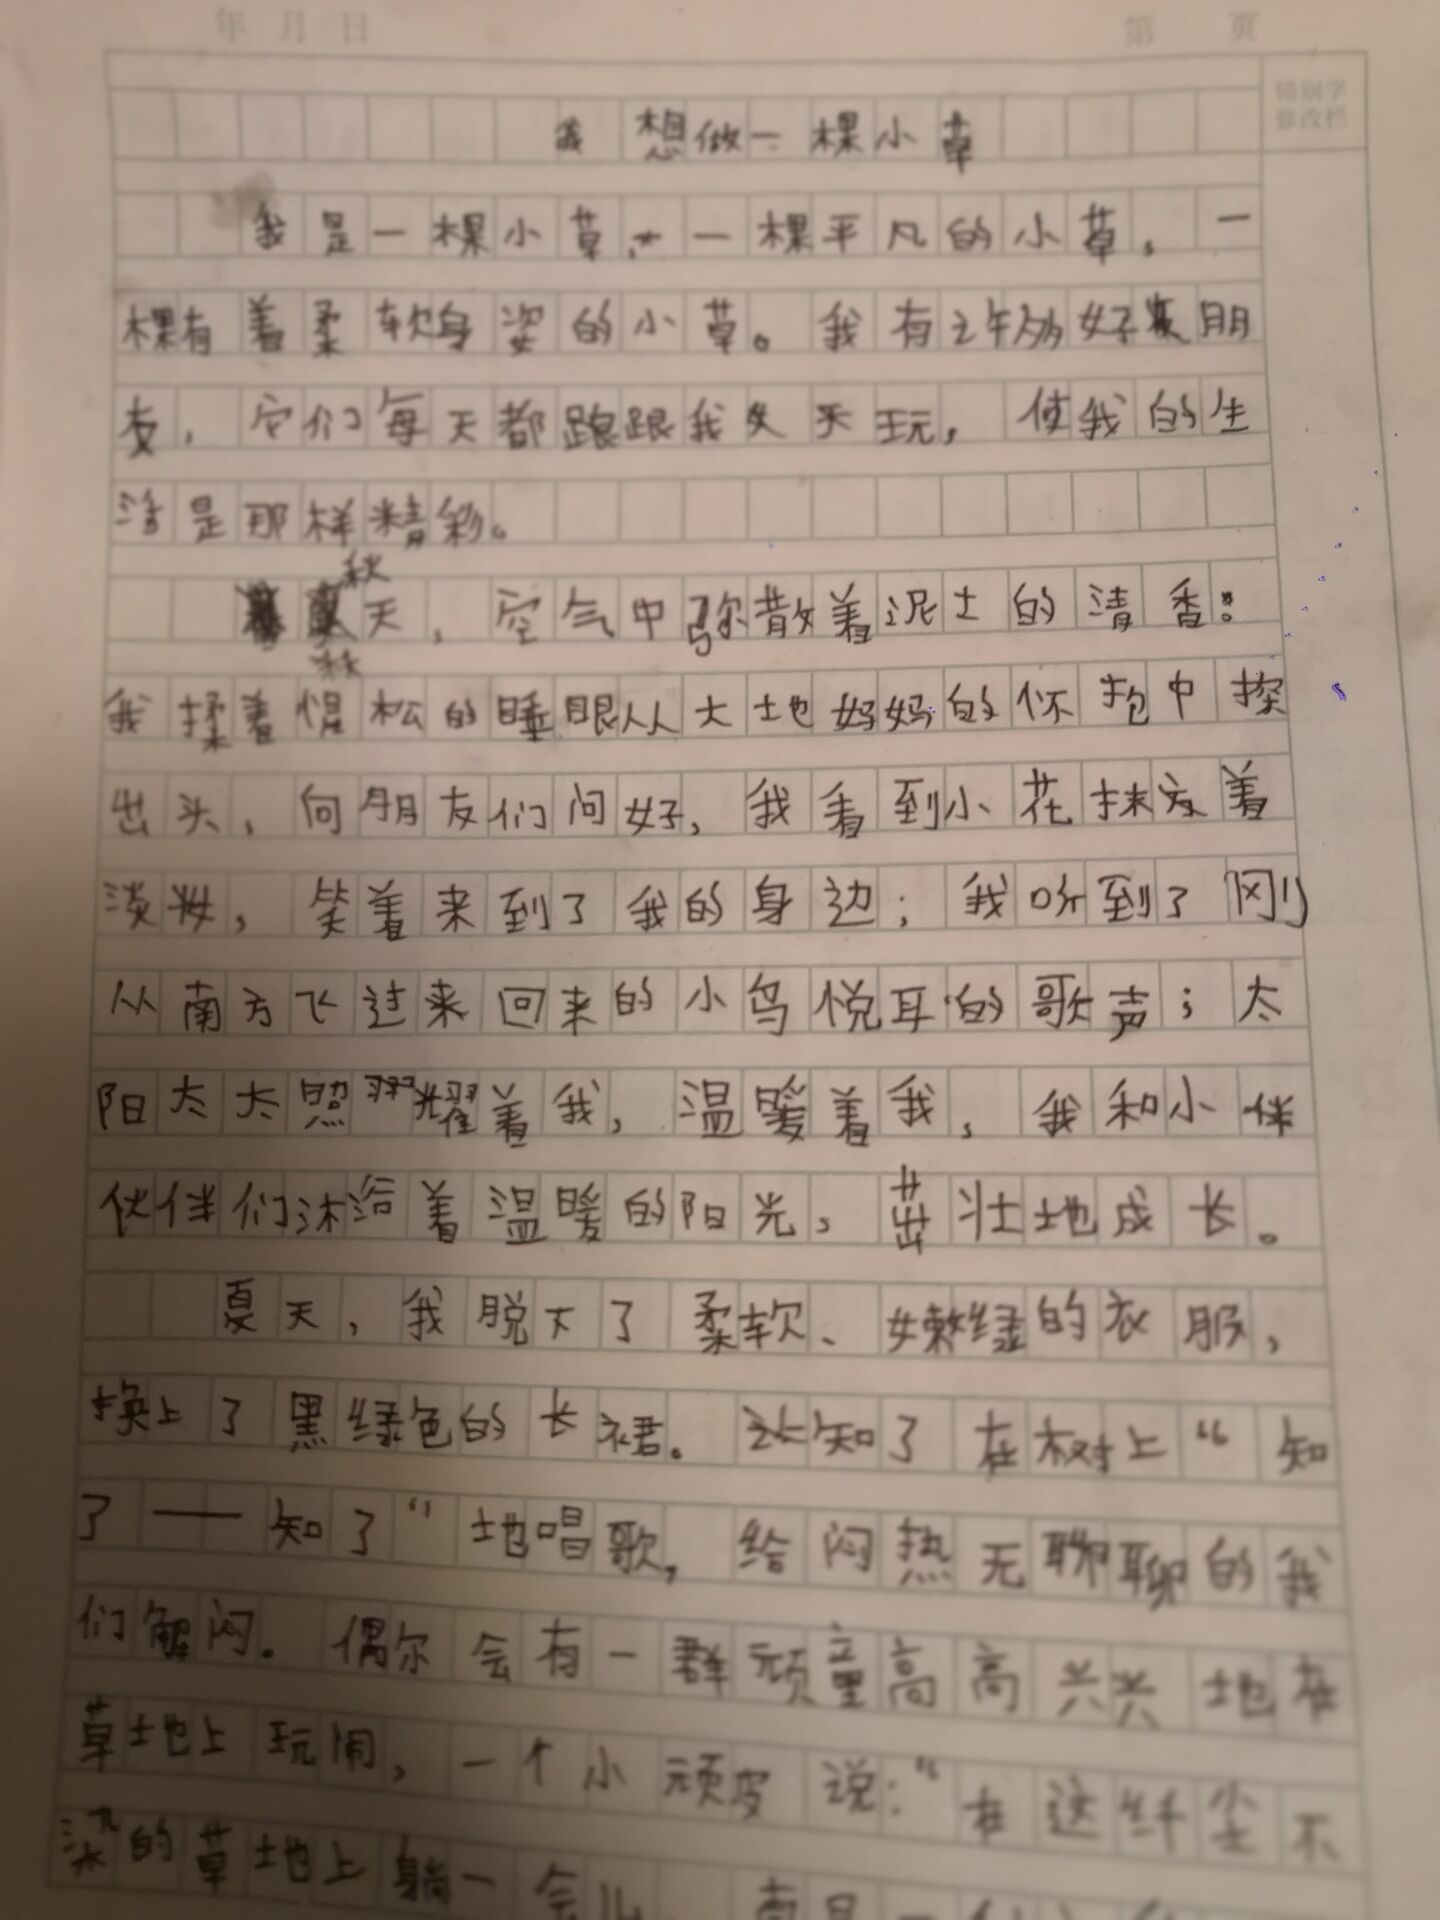 年 月 日 第 页
错别字
修改栏
我想做一棵小草
我是一棵小草,一棵平凡的小草,一
棵有着柔软身姿的小草。我有许多好朋
友,它们每天都跟我玩,使我的生
活是那样精彩。
秋
天,空气中弥散着泥土的清香:
我揉着惺松的睡眼从大地妈妈的怀抱中探
出头,向朋友们问好,我看到小花抹着
淡妆,笑着来到了我的身边;我听到了刚
从南方飞过来回来的小鸟悦耳的歌声;太
阳太太照耀着我,温暖着我,我和小伴
伙伴们沐浴着温暖的阳光,茁壮地成长。
夏天,我脱下了柔软、嫩绿的衣服,
换上了黑绿色的长裙。知了在树上“知
了——知了”地唱歌,给闷热无聊聊的我
们解闷。偶尔会有一群顽童高高兴兴地在
草地上玩闹,一个小顽皮说:“在这纤尘不
染的草地上躺一会儿